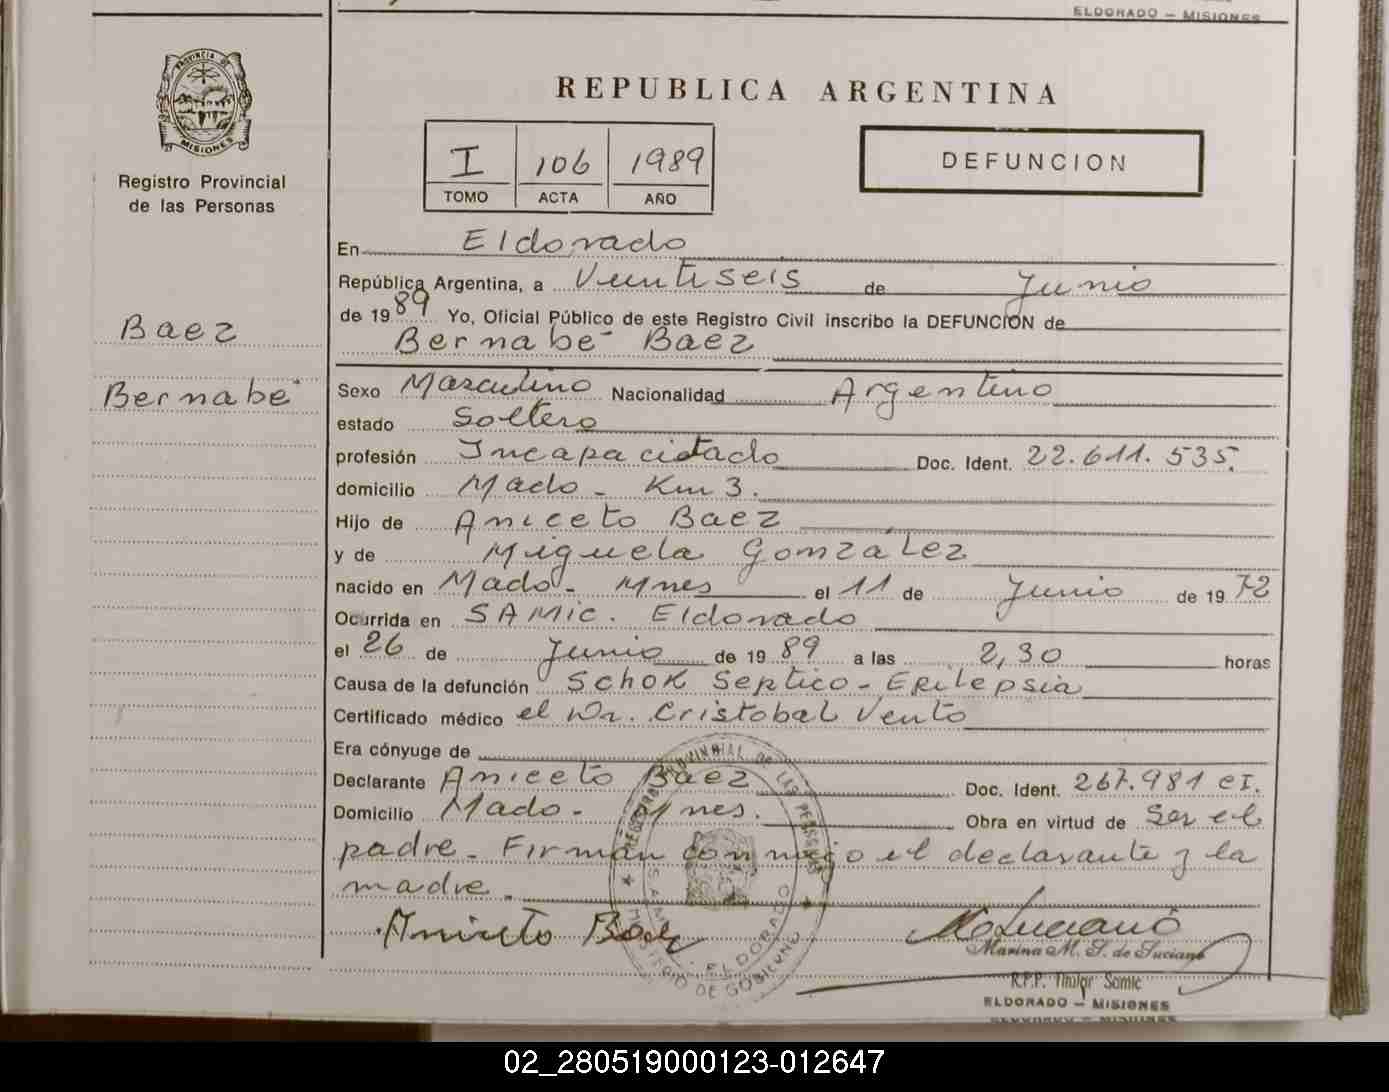 ELDORADO — MISIONES
PROVINCIA DE
MISIONES
Registro Provincial
de las Personas
REPUBLICA ARGENTINA
I 106 1989
TOMO ACTA AÑO
DEFUNCION
Baez
Bernabé
En Eldorado
República Argentina, a Veintiseis de Junio
de 1989 Yo, Oficial Público de este Registro Civil inscribo la DEFUNCION de
Bernabé Baez
Sexo Masculino Nacionalidad Argentino
estado Soltero
profesión Incapacitado Doc. Ident. 22.611.535.
domicilio Mado - Km 3.
Hijo de Aniceto Baez
y de Miguela González
nacido en Mado - Mnes el 11 de Junio de 1972
Ocurrida en SAMIC. Eldorado
el 26 de Junio de 1989 a las 2,30 horas
Causa de la defunción Schok Septico - Epilepsia
Certificado médico el Dr. Cristobal Vento
Era cónyuge de
Declarante Aniceto Baez Doc. Ident. 267.981 CI.
Domicilio Mado - Mnes. Obra en virtud de Ser el
padre - Firman conmigo el declarante y la
madre.
Aniceto Baez
Marina M. S. de Luciano
R.P.P. Titular Samic
ELDORADO — MISIONES
ELDORADO — MISIONES
REGISTRO PROVINCIAL DE LAS PERSONAS
ELDORADO
MINISTERIO DE GOBIERNO
02_280519000123-012647